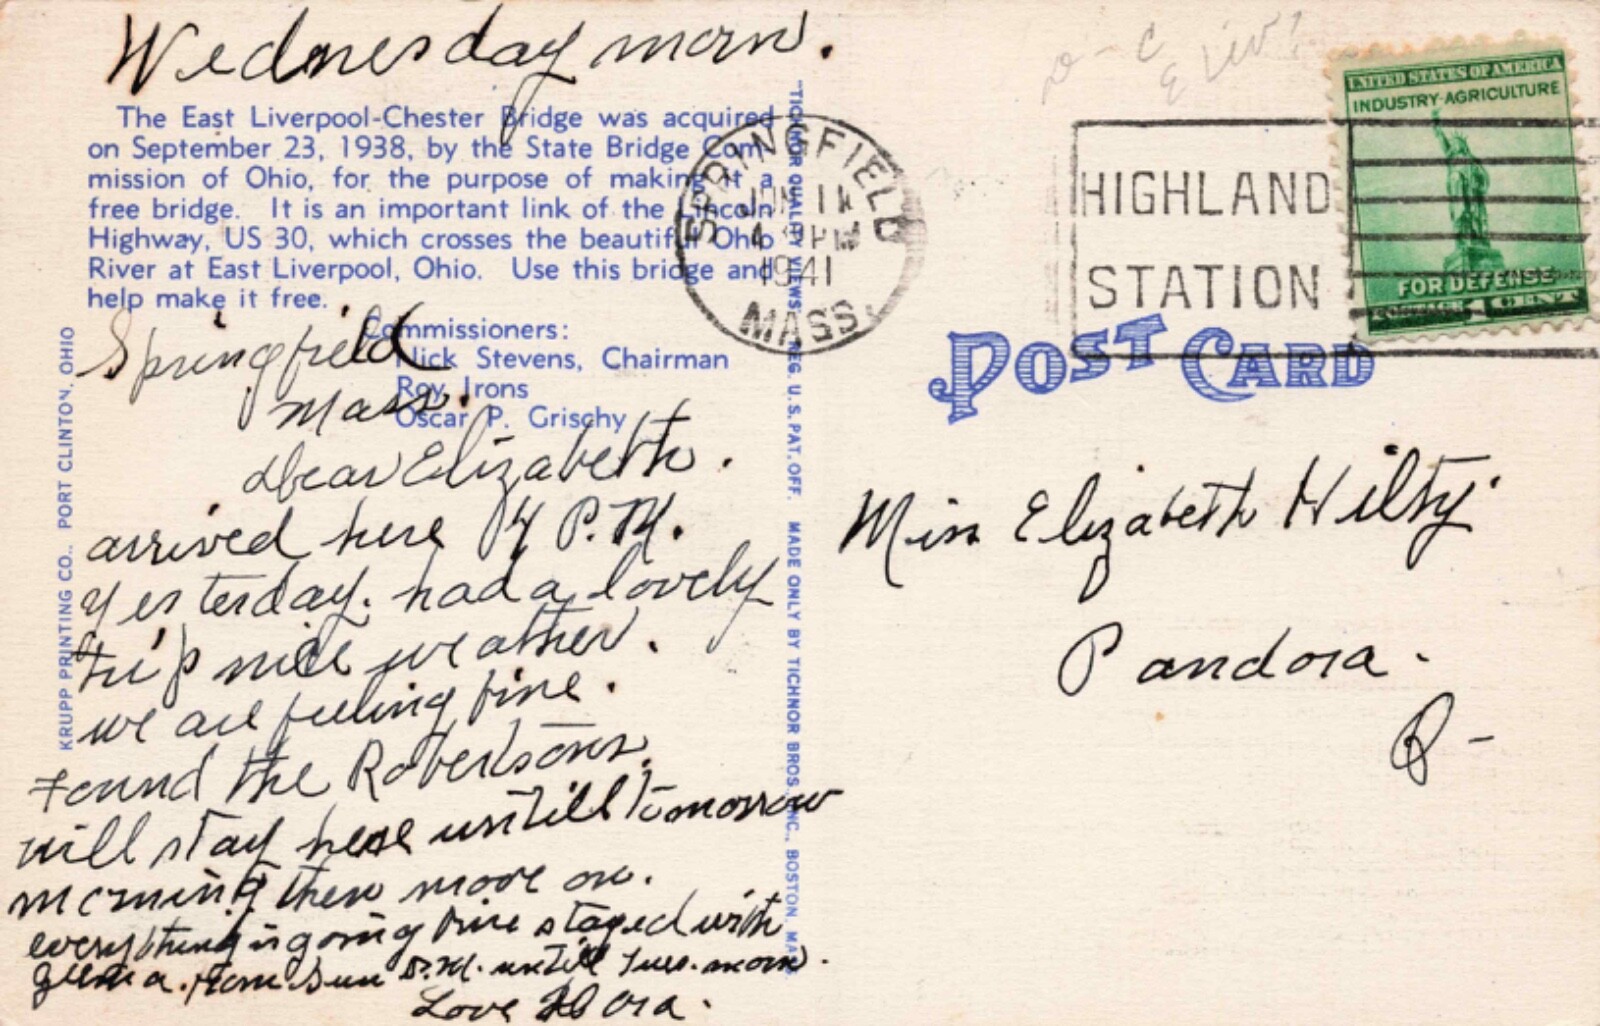 Wednesday morn.
The East Liverpool-Chester Bridge was acquired
on September 23, 1938, by the State Bridge Com-
mission of Ohio, for the purpose of making it a
free bridge. It is an important link of the Lincoln
Highway, US 30, which crosses the beautiful Ohio
River at East Liverpool, Ohio. Use this bridge and
help make it free.
Commissioners:
Nick Stevens, Chairman
Roy Irons
Oscar P. Grischy
Springfield
Mass.
Dear Elizabeth.
arrived here 4 P.M.
yesterday. had a lovely
trip nice weather.
we are feeling fine.
Found the Robertsons.
will stay here untill tomorrow
morning then move on.
everything is going fine stayed with
from Sun P.M. untill Tues. morn.
Love Dora.
KRUPP PRINTING CO., PORT CLINTON, OHIO
"TICHNOR QUALITY VIEWS," REG. U. S. PAT. OFF. MADE ONLY BY TICHNOR BROS., INC., BOSTON, MASS.
SPRINGFIELD
JUN 11
4 PM
1941
MASS.
HIGHLAND
STATION
UNITED STATES OF AMERICA
INDUSTRY-AGRICULTURE
FOR DEFENSE
1 CENT
POST CARD
Miss Elizabeth Hilty.
Pandora.
O-